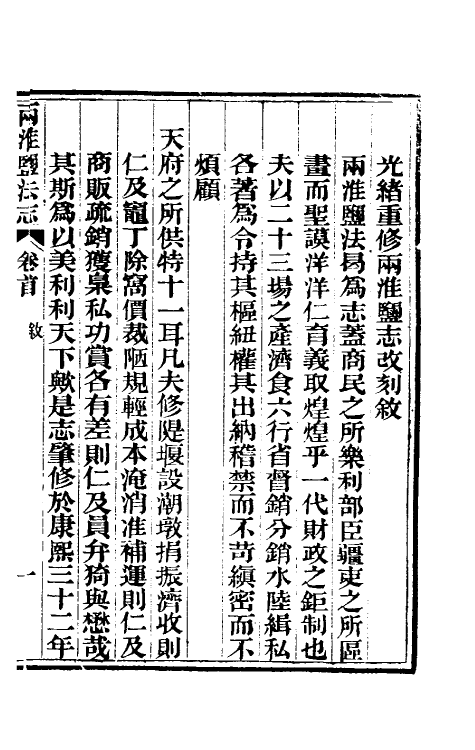 光緒重修兩淮鹽志改刻敘
兩淮鹽法曷為志蓋商民之所樂利部臣疆吏之所區
畫而聖謨洋洋仁育義取煌煌乎一代財政之鉅制也
夫以二十三場之產濟食六行省督銷分銷水陸緝私
各著為令持其樞紐權其出納稽禁而不苛縝密而不
煩顧
天府之所供特十一耳凡夫修隄堰設潮墩捐振濟收則
仁及竈丁除窩價裁陋規輕成本淹消准補運則仁及
商販疏銷獲梟私功賞各有差則仁及員弁猗與懋哉
其斯為以美利利天下歟是志肇修於康熙三十二年
兩淮鹽法志
卷首
敘
一